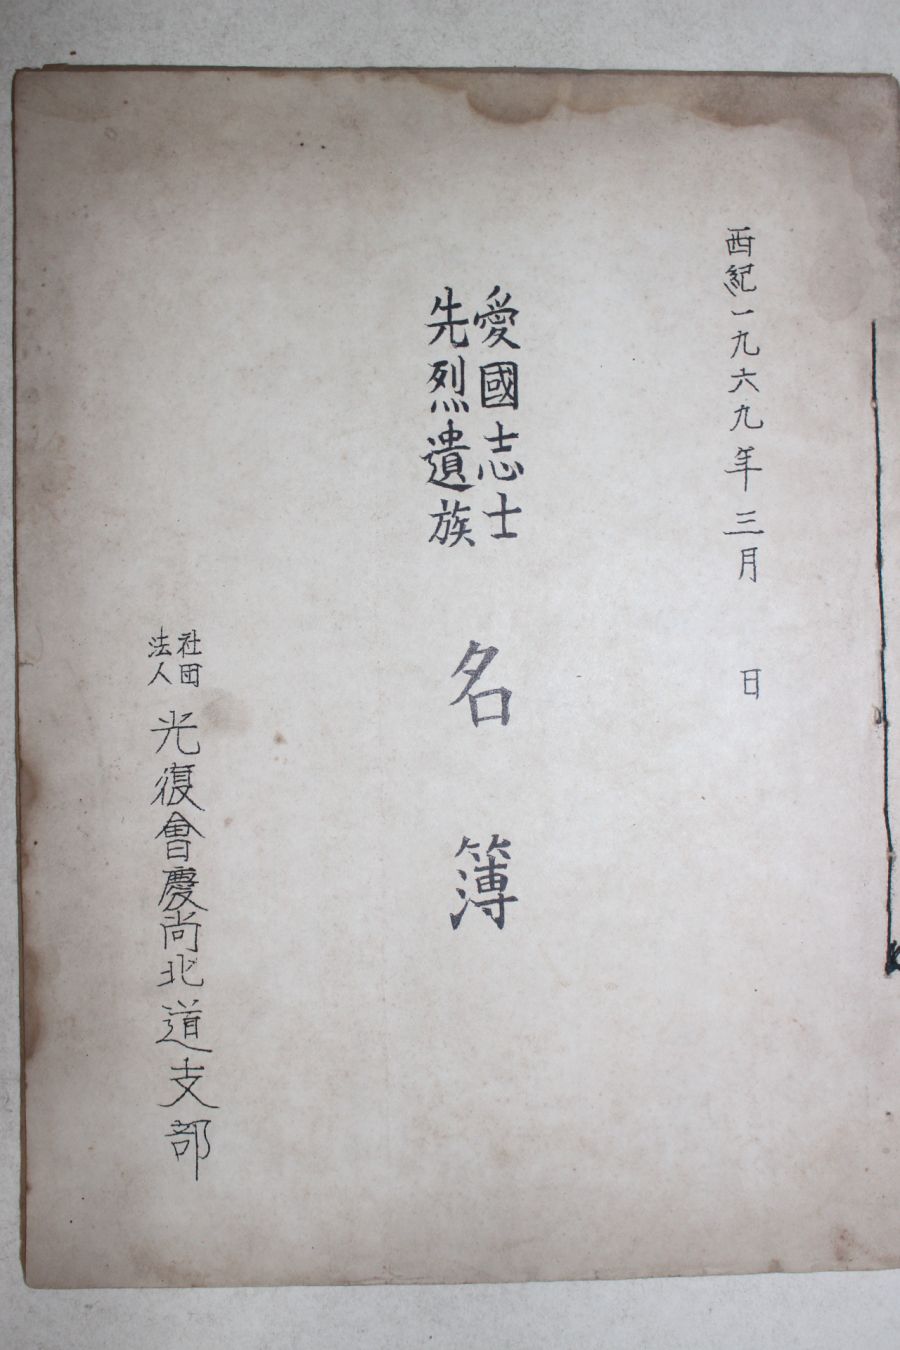 西紀一九六九年 三月 日
愛國志士
先烈遺族
名簿
社団
法人
光復會慶尚北道支部